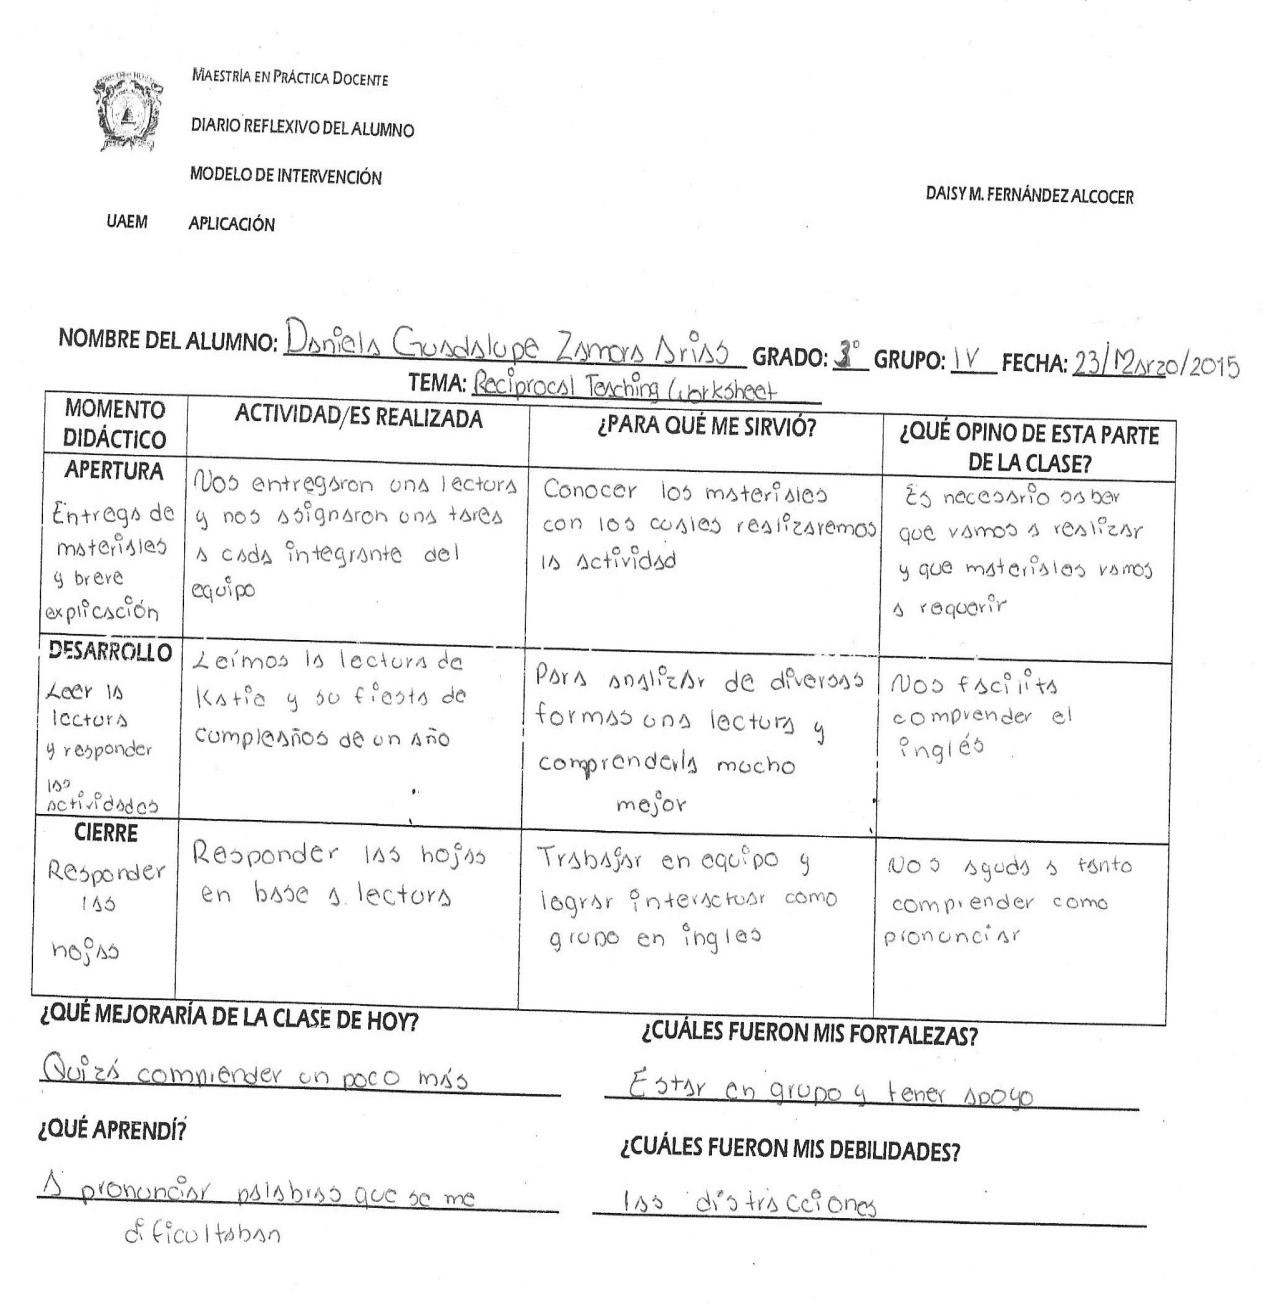 MAESTRÍA EN PRÁCTICA DOCENTE
DIARIO REFLEXIVO DEL ALUMNO
MODELO DE INTERVENCIÓN
DAISY M. FERNÁNDEZ ALCOCER
UAEM APLICACIÓN
NOMBRE DEL ALUMNO: Daniela Guadalupe Zamora Arias GRADO: 3° GRUPO: IV FECHA: 23/Marzo/2015
TEMA: Reciprocal Teaching Worksheet
MOMENTO
DIDÁCTICO
ACTIVIDAD/ES REALIZADA
¿PARA QUÉ ME SIRVIÓ?
¿QUÉ OPINO DE ESTA PARTE
DE LA CLASE?
APERTURA
Entrega de
materiales
y breve
explicación
Nos entregaron una lectura
y nos asignaron una tarea
a cada integrante del
equipo
Conocer los materiales
con los cuales realizaremos
la actividad
Es necesario saber
que vamos a realizar
y que materiales vamos
a requerir
DESARROLLO
Leer la
lectura
y responder
las
actividades
Leímos la lectura de
Katie y su fiesta de
cumpleaños de un año
Para analizar de diversas
formas una lectura y
comprenderla mucho
mejor
Nos facilita
comprender el
inglés
CIERRE
Responder
las
hojas
Responder las hojas
en base a lectura
Trabajar en equipo y
lograr interactuar como
grupo en ingles
Nos ayuda a tanto
comprender como
pronunciar
¿QUÉ MEJORARÍA DE LA CLASE DE HOY?
Quizá comprender un poco más
¿CUÁLES FUERON MIS FORTALEZAS?
Estar en grupo y tener apoyo
¿QUÉ APRENDÍ?
A pronunciar palabras que se me
dificultaban
¿CUÁLES FUERON MIS DEBILIDADES?
las distracciones